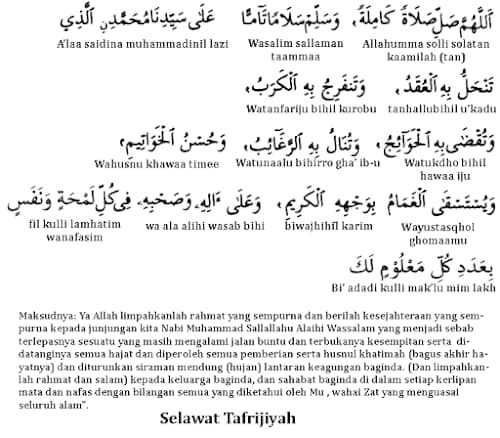 اَللّٰهُمَّ صَلِّ صَلَاةً كَامِلَةً، وَسَلِّمْ سَلَامًا تَآمًّا عَلَى سَيِّدِنَا مُحَمَّدِنِ الَّذِي
A'laa saidina muhammadinil lazi Wasalim sallaman Allahumma solli solatan
taammaa kaamilah (tan)
تَنْحَلُّ بِهِ الْعُقَدُ، وَتَنْفَرِجُ بِهِ الْكُرَبُ،
Watanfariju bihil kurobu tanhallubihil u'kadu
وَتُقْضٰى بِهِ الْحَوَآئِجُ، وَتُنَالُ بِهِ الرَّغَآئِبُ، وَحُسْنُ الْخَوَاتِيمِ،
Wahusnu khawaa timee Watunaalu bihirro gha' ib-u Watukdho bihil
hawaa iju
وَيُسْتَسْقَى الْغَمَامُ بِوَجْهِهِ الْكَرِيمِ، وَعَلَى ءَالِهِ، وَصَحْبِهِ، فِى كُلِّ لَمْحَةٍ وَنَفَسٍ
fil kulli lamhatim wa ala alihi wasab bihi biwajhihil karim Wayustasqhol
wanafasim ghomaamu
بِعَدَدِ كُلِّ مَعْلُوْمٍ لَكَ
Bi' adadi kulli mak'lu mim lakh
Maksudnya: Ya Allah limpahkanlah rahmat yang sempurna dan berilah kesejahteraan yang sem-
purna kepada junjungan kita Nabi Muhammad Sallallahu Alaihi Wassalam yang menjadi sebab
terlepasnya sesuatu yang masih mengalami jalan buntu dan terbukanya kesempitan serta di-
datanginya semua hajat dan diperoleh semua pemberian serta husnul khatimah (bagus akhir ha-
yatnya) dan diturunkan siraman mendung (hujan) lantaran keagungan baginda. (Dan limpahkan-
lah rahmat dan salam) kepada keluarga baginda, dan sahabat baginda di dalam setiap kerlipan
mata dan nafas dengan bilangan semua yang diketahui oleh Mu , wahai Zat yang menguasai
seluruh alam".
Selawat Tafrijiyah